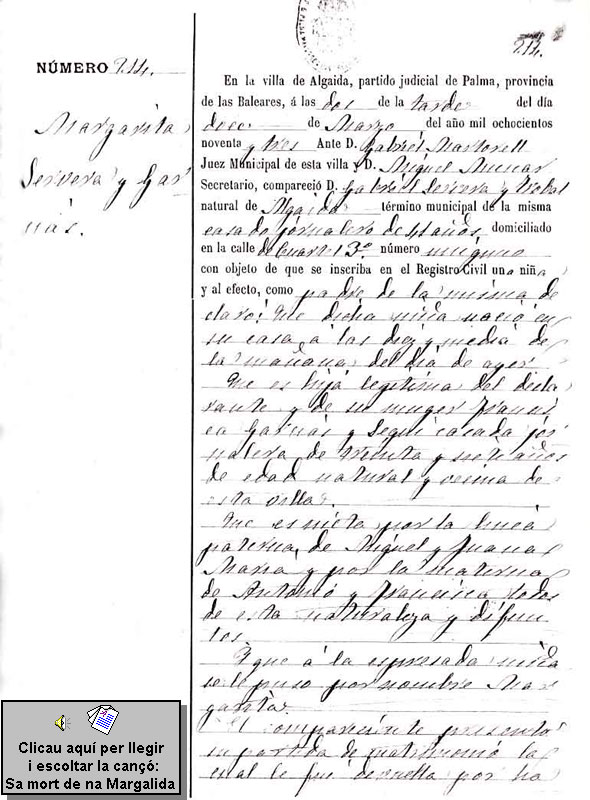 214.
NÚMERO 214.
Margarita
Servera y Gar-
nás.
En la villa de Algaida, partido judicial de Palma, provincia
de las Baleares, á las dos de la tarde del día
doce de Marzo del año mil ochocientos
noventa y tres Ante D. Gabriel Martorell
Juez Municipal de esta villa y D. Miguel
Secretario, compareció D. Gabriel Servera y
natural de Algaida término municipal de la misma
casado jornalero de 41 años domiciliado
en la calle de Cuartel 3º número
con objeto de que se inscriba en el Registro Civil una niña
y al efecto, como padre de la misma de
claró: Que dicha niña nació en
su casa á las diez y media de
la mañana del día de ayer
Que es hija legítima del decla
rante y de su muger Franci
ca Garnás y Seguí casada jor
nalera de treinta y siete años
de edad natural y vecina de
esta villa.
Que es nieta por la linea
paterna de Miguel y Juana
Maria y por la materna
de Antonio y Francisca todos
de esta naturaleza y difun
tos
Y que á la espresada niña
se le puso por nombre Mar
garita.
El compareciente presentó
su partida de matrimonio la
cual le fue devuelta por ha
Clicau aquí per llegir
i escoltar la cançó:
Sa mort de na Margalida